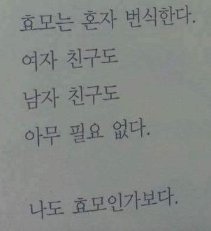 효모는 혼자 번식한다.
여자 친구도
남자 친구도
아무 필요 없다.
나도 효모인가보다.